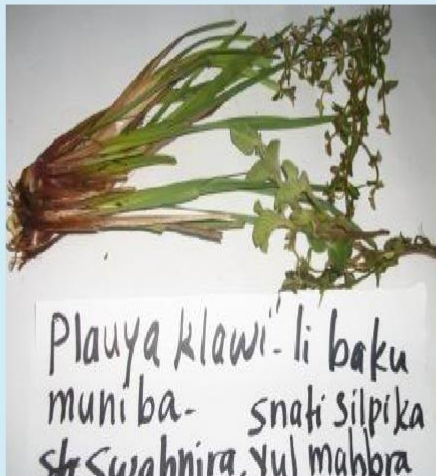 Plauya klawi - li baku
muniba- snati silpika
swahnira, yul mahbra